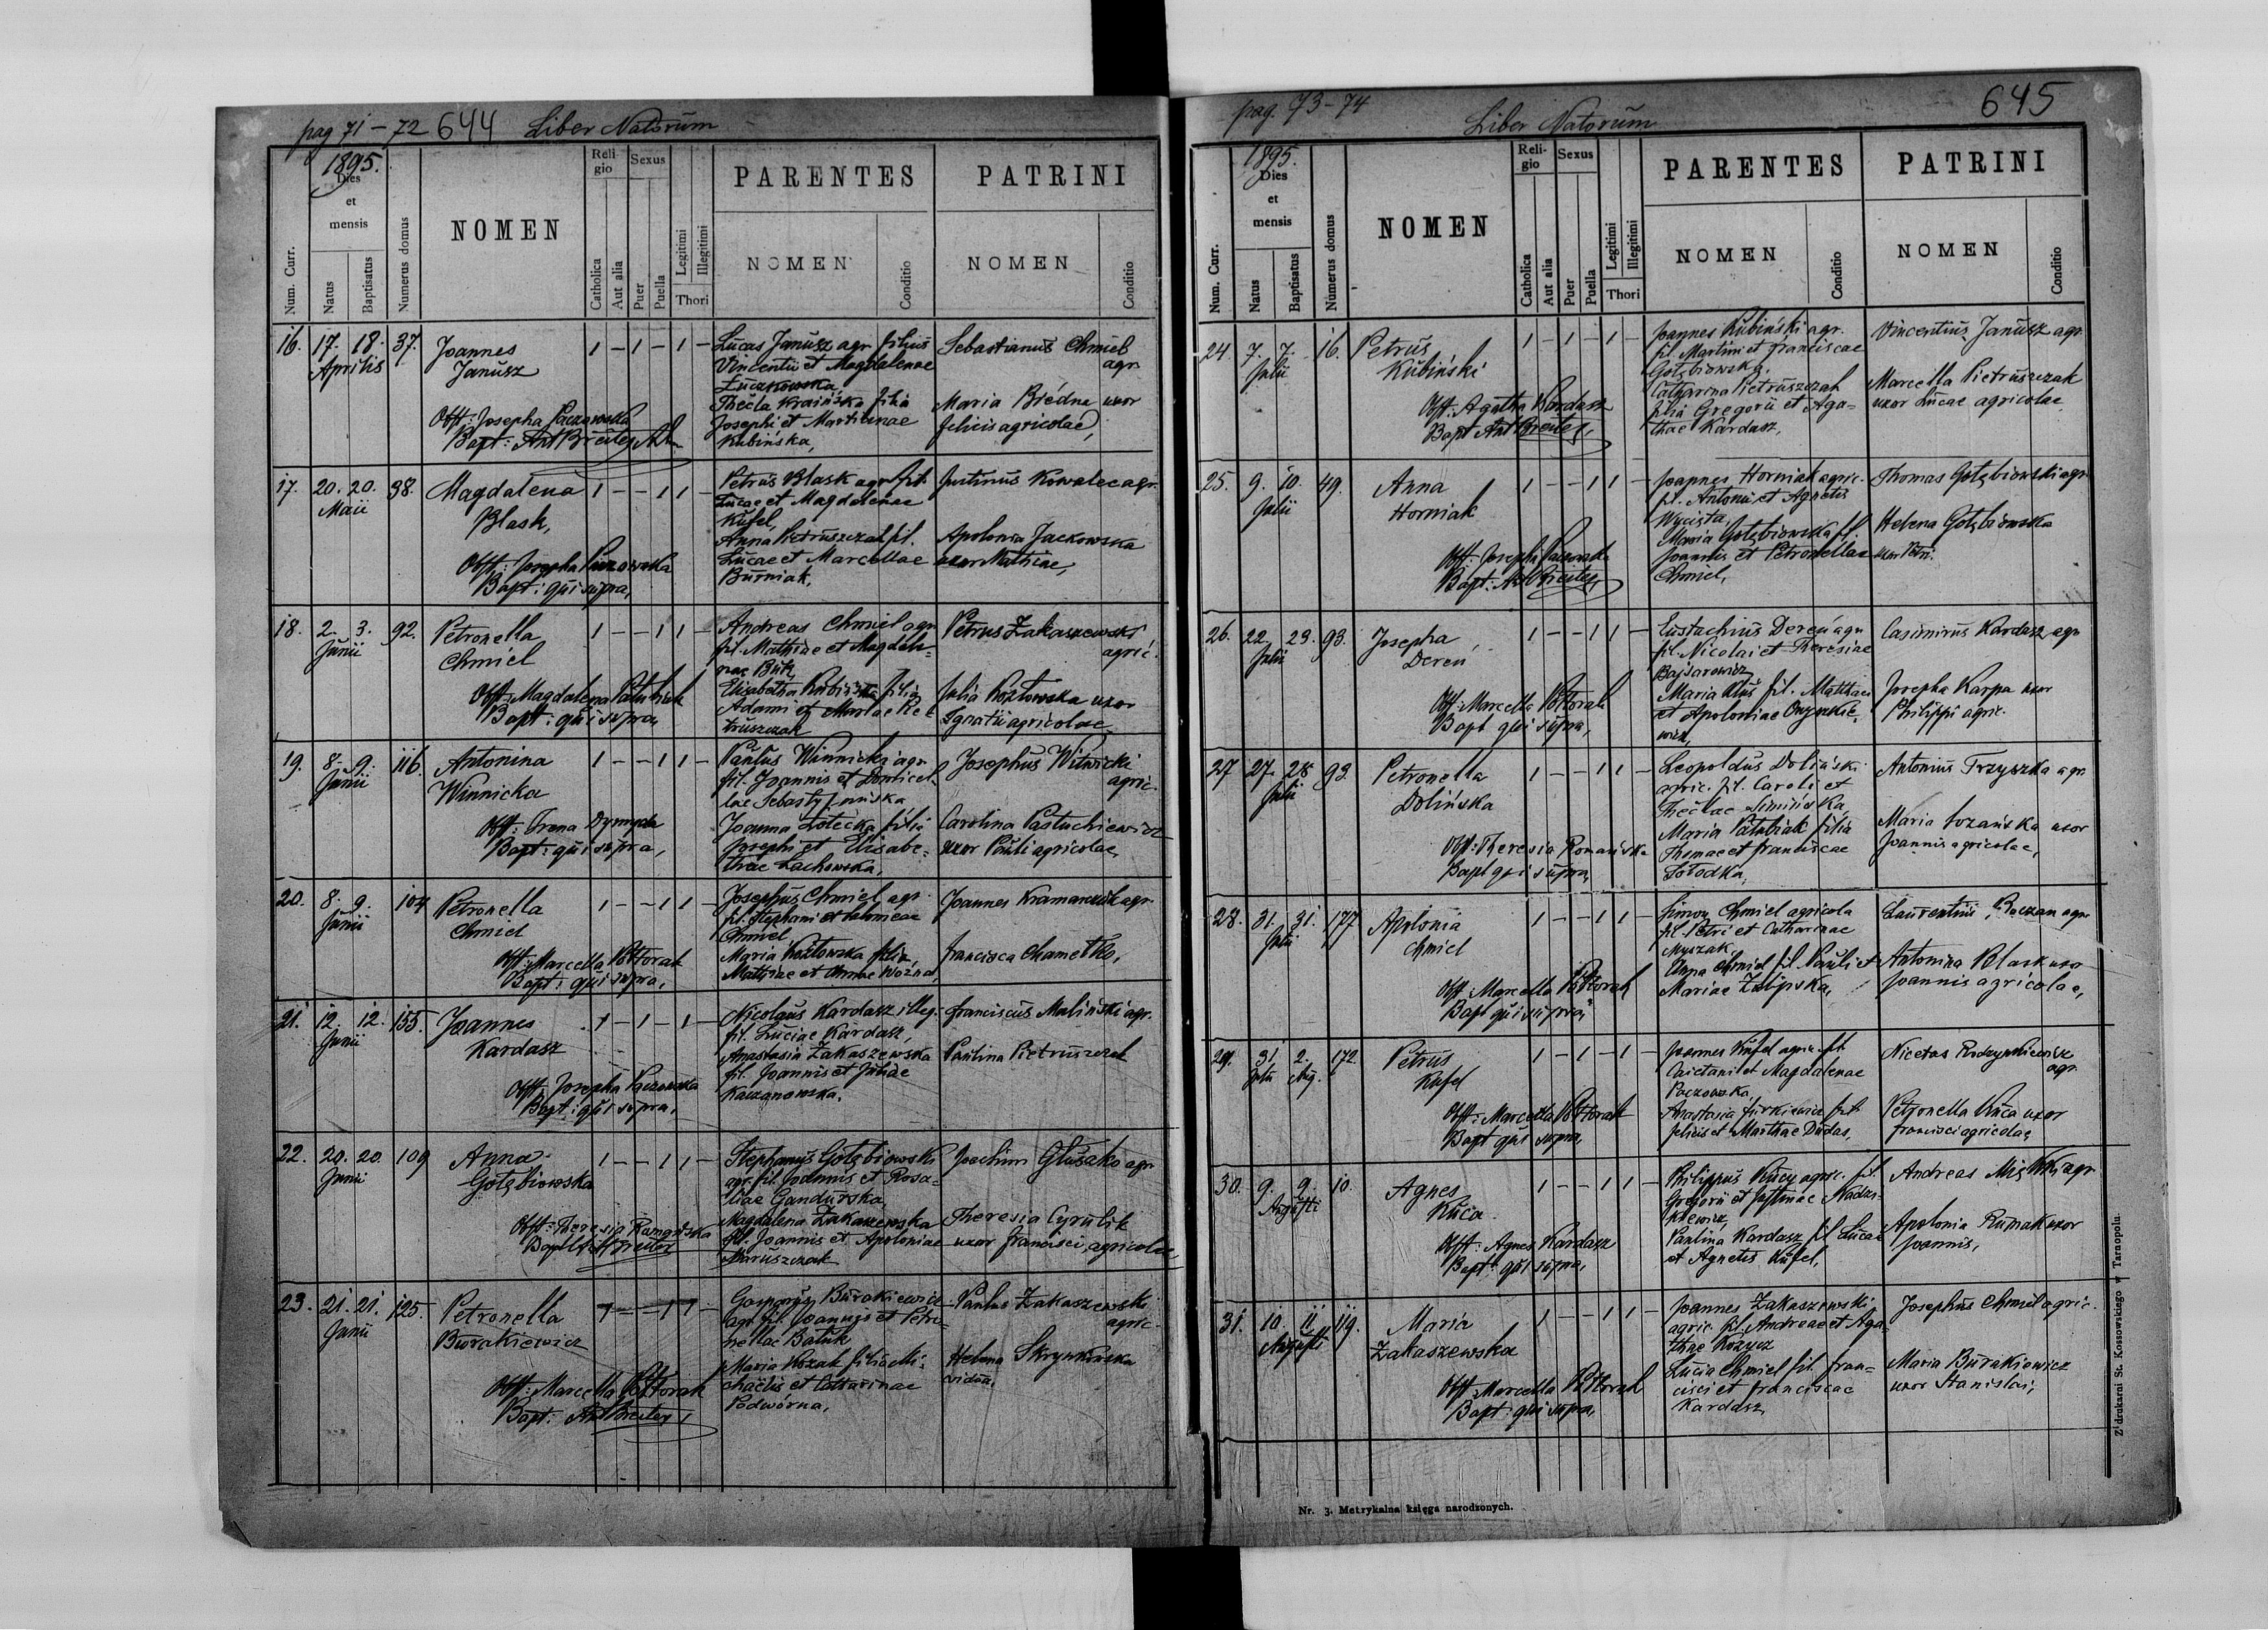 pag 71 - 72 644 Liber Natorum
1895.
Num. Curr.
Dies et mensis
Natus
Baptisatus
Numerus domus
NOMEN
Religio
Catholica
Aut alia
Sexus
Puer
Puella
Legitimi
Illegitimi
Thori
PARENTES
NOMEN
Conditio
PATRINI
NOMEN
Conditio
16. 17. 18. 37.
Aprilis
Joannes
Janusz
Obst: Josepha Paczowska
Bapt: Ant Breitez
Lucas Janusz agr. filius
Vincentii et Magdalenae
Luczkowska
Thecla Krasińska filia
Josephi et Martianae
Kubińska,
Sebastianus Chmiel
agr.
Maria Biedna uxor
felicis agricolae,
17. 20. 20. 98.
Maii
Magdalena
Blask,
Obst: Josepha Paczowska
Bapt: qui supra,
Petrus Blask agr. fil.
Lucae et Magdalenae
Kufel,
Anna Pietruszczak fil.
Lucae et Marcellae
Burniak,
Justinus Kowalec agr.
Apolonia Jackowska
uxor Mathiae,
18. 2. 3. 92.
Junii
Petronella
Chmiel
Obst: Magdalena Patubiak
Bapt: qui supra,
Andreas Chmiel agr.
fil. Mathiae et Magdale=
nae Buk,
Elisabetha Kubińska filia
Adami et Mariae Pie=
truszczak
Petrus Zakaszewski
agric.
Julia Kozłowska uxor
Ignatii agricolae
19. 8. 9. 116.
Junii
Antonina
Winnicka
Obst: Irena Dymyda
Bapt: qui supra,
Paulus Winnicki agr.
fil. Joannis et Domicel
lae Sebastyjańska
Joanna Zotecka filia
Josephi et Elisabe=
thae Lachowska,
Josephus Witwicki
agric.
Carolina Pastuchiewicz
uxor Pauli agricolae,
20. 8. 9. 104
Junii
Petronella
Chmiel
Obst: Marcella Półtorak
Bapt: qui supra,
Josephus Chmiel agr.
fil. Stephani et Salomeae
Chmiel
Maria Kozłowska filia
Mathiae et Annae Woźna,
Joannes Kramarczuk agr.
francisca Chamełko,
21. 12. 12. 155.
Junii
Joannes
Kardasz
Obst: Josepha Paczowska
Bapt: qui supra,
Nicolaus Kardasz illeg.
fil. Luciae Kardasz,
Anastasia Zakaszewska
fil. Joannis et Juliae
Kaczanowska.
franciscus Maliński agr.
Paulina Pietruszczak
22. 20. 20. 109
Junii
Anna
Gołębiowska
Obst: Theresia Romańska
Bapt: Ant Breitez
Stephanus Gołębiowski
agr. fil. Joannis et Rosa=
liae Gandurska,
Magdalena Zakaszewska
fil. Joannis et Apoloniae
Maruszczak
Joachim Głuszko agr.
Theresia Cyrulik
uxor francisci agricolae
23. 21. 21. 125.
Junii
Petronella
Burakiewicz
Obst: Marcella Półtorak
Bapt: Ant Breitez,
Gasparus Burakiewicz
agr. fil. Joannis et Petro=
nellae Batuk
Maria Kozak filia Mi=
chaëlis et Catharinae
Podwórna,
Paulus Zakaszewski
agric.
Helena Skrynkowska
vidua,
pag. 73 - 74 Liber Natorum 645
1895.
Num. Curr.
Dies et mensis
Natus
Baptisatus
Numerus domus
NOMEN
Religio
Catholica
Aut alia
Sexus
Puer
Puella
Legitimi
Illegitimi
Thori
PARENTES
NOMEN
Conditio
PATRINI
NOMEN
Conditio
24. 7. 7. 16.
Julii
Petrus
Kubiński
Obst: Agatha Kardasz
Bapt Ant Breitez,
Joannes Kubiński agr.
fil. Martini et franciscae
Gołębiowska.
Catharina Pietruszczak
filia Gregorii et Aga=
thae Kardasz,
Vincentius Janusz agr.
Marcella Pietruszczak
uxor Lucae agricolae
25. 9. 10. 49.
Julii
Anna
Horniak
Obst: Josepha Paczowska
Bapt: Ant Breitez,
Joannes Horniak agric.
fil. Antonii et Agnetis
Wycięta,
Maria Gołębiowska fil.
Joannis et Petronellae
Chmiel,
Thomas Gołębiowski agr.
Helena Gołębiowska
uxor Petri.
26. 22. 23. 93.
Julii
Josepha
Dereń
Obst: Marcella Półtorak
Bapt qui supra,
Eustachius Dereń agr.
fil. Nicolai et Theresiae
Bajsarowicz
Maria Kluś fil. Matthaei
et Apoloniae Onyszkie=
wicz,
Casimirus Kardasz agr.
Josepha Karpa uxor
Philippi agric.
27 27. 28. 93.
Julii
Petronella
Dolińska
Obst: Theresia Romańska
Bapt qui supra,
Leopoldus Doliński
agric. fil. Caroli et
Theclae Simińska,
Maria Patubiak filia
Thomae et franciscae
Sołodka,
Antonius Trzyszka agr.
Maria Łozańska uxor
Joannis agricolae,
28. 31. 31. 177
Julii
Apolonia
Chmiel
Obst: Marcella Półtorak
Bapt qui supra,
Simon Chmiel agricola
fil. Petri et Catharinae
Muszak,
Anna Chmiel fil. Pauli et
Mariae Zalipska,
Laurentius Baczan agr.
Antonina Blask uxor
Joannis agricolae,
29. 31. 2. 172.
Julii Aug.
Petrus
Kufel
Obst: Marcella Półtorak
Bapt qui supra,
Joannes Kufel agric. fil.
Caietani et Magdalenae
Paczowska,
Anastasia Firkiewicz fil.
felicis et Marthae Dudas,
Nicetas Rudzynkiewicz
agr.
Petronella Kuca uxor
francisci agricolae,
30. 9. 9. 10.
Augusti
Agnes
Kuca
Obst: Agnes Kardasz
Bapt: qui supra,
Philippus Kucy agric. fil.
Gregorii et Justinae Nadzi=
kiewicz,
Paulina Kardasz fil. Lucae
et Agnetis Kufel,
Andreas Miękki agr.
Apolonia Rumak uxor
Joannis,
31. 10. 11. 119.
Augusti
Maria
Zakaszewska
Obst: Marcella Półtorak
Bapt: qui supra,
Joannes Zakaszewski
agric. fil. Andreae et Aga=
thae Kozycz
Lucia Chmiel fil. fran=
cisci et franciscae
Kardasz
Josephus Chmiel agric.
Maria Burakiewicz
uxor Stanislai,
Nr. 3. Metrykalna księga narodzonych.
Z drukarni St. Kossowskiego w Tarnopolu.